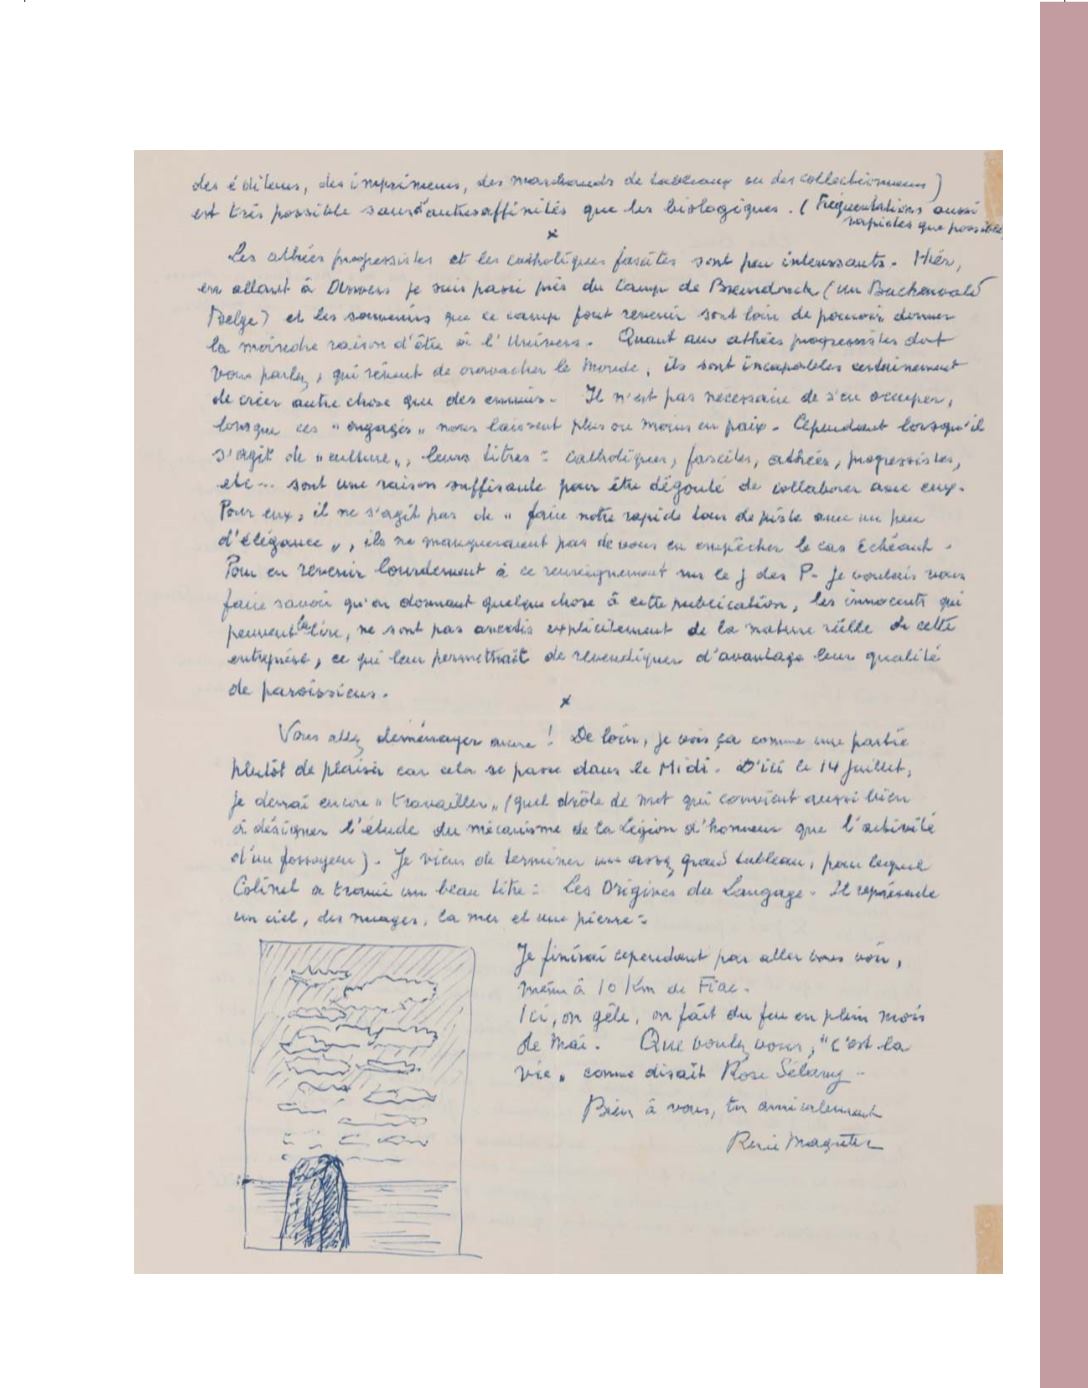 des éditeurs, des imprimeurs, des marchands de tableaux ou des collectionneurs)
est très possible sans d'autres affinités que les biologiques. (Fréquentations aussi
rapides que possible
x
Les athées progressistes et les catholiques fascites sont peu interessants. Hier,
en allant à Anvers je suis passé près du Camp de Breendonck (un Buchenwald
Belge) et les souvenirs que ce camp fait revenir sont loin de pouvoir donner
la moindre raison d'être à l'Univers. Quant aux athées progressistes dont
vous parlez, qui rêvent de cravacher le Monde, ils sont incapables certainement
de créer autre chose que des ennuis. Il n'est pas nécessaire de s'en occuper,
lorsque ces "engagés" nous laissent plus ou moins en paix. Cependant lorsqu'il
s'agit de "culture", leurs titres : catholiques, fascites, athées, progressistes,
etc... sont une raison suffisante pour être dégouté de collaborer avec eux.
Pour eux, il ne s'agit pas de "faire notre rapide tour de piste avec un peu
d'élégance", ils ne manqueraient pas de vous en empêcher le cas Echéant.
Pour en revenir lourdement à ce renseignement sur le J des P. Je voulais vous
faire savoir qu'en donnant quelque chose à cette publication, les innocents qui
peuvent la lire, ne sont pas avertis explicitement de la nature réelle de cette
entreprise, ce qui leur permettrait de revendiquer d'avantage leur qualité
de paroissiens.
x
Vous allez deménager encore ! De loin, je vois ça comme une partie
plutôt de plaisir car cela se passe dans le Midi. D'ici le 14 Juillet,
je devrai encore "travailler" (quel drôle de mot qui convient aussi bien
à désigner l'étude du mécanisme de la Légion d'honneur que l'activité
d'un fossoyeur). Je viens de terminer un assez grand tableau, pour lequel
Colinet a trouvé un beau titre : Les Origines du Langage. Il représente
un ciel, des nuages, la mer et une pierre :
Je finirai cependant par aller vous voir,
même à 10 Km de Fiac.
Ici, on gêle, on fait du feu en plein mois
de Mai. Que voulez vous, "c'est la
vie" comme disait Rose Sélavy.
Bien à vous, très amicalement
René Magritte